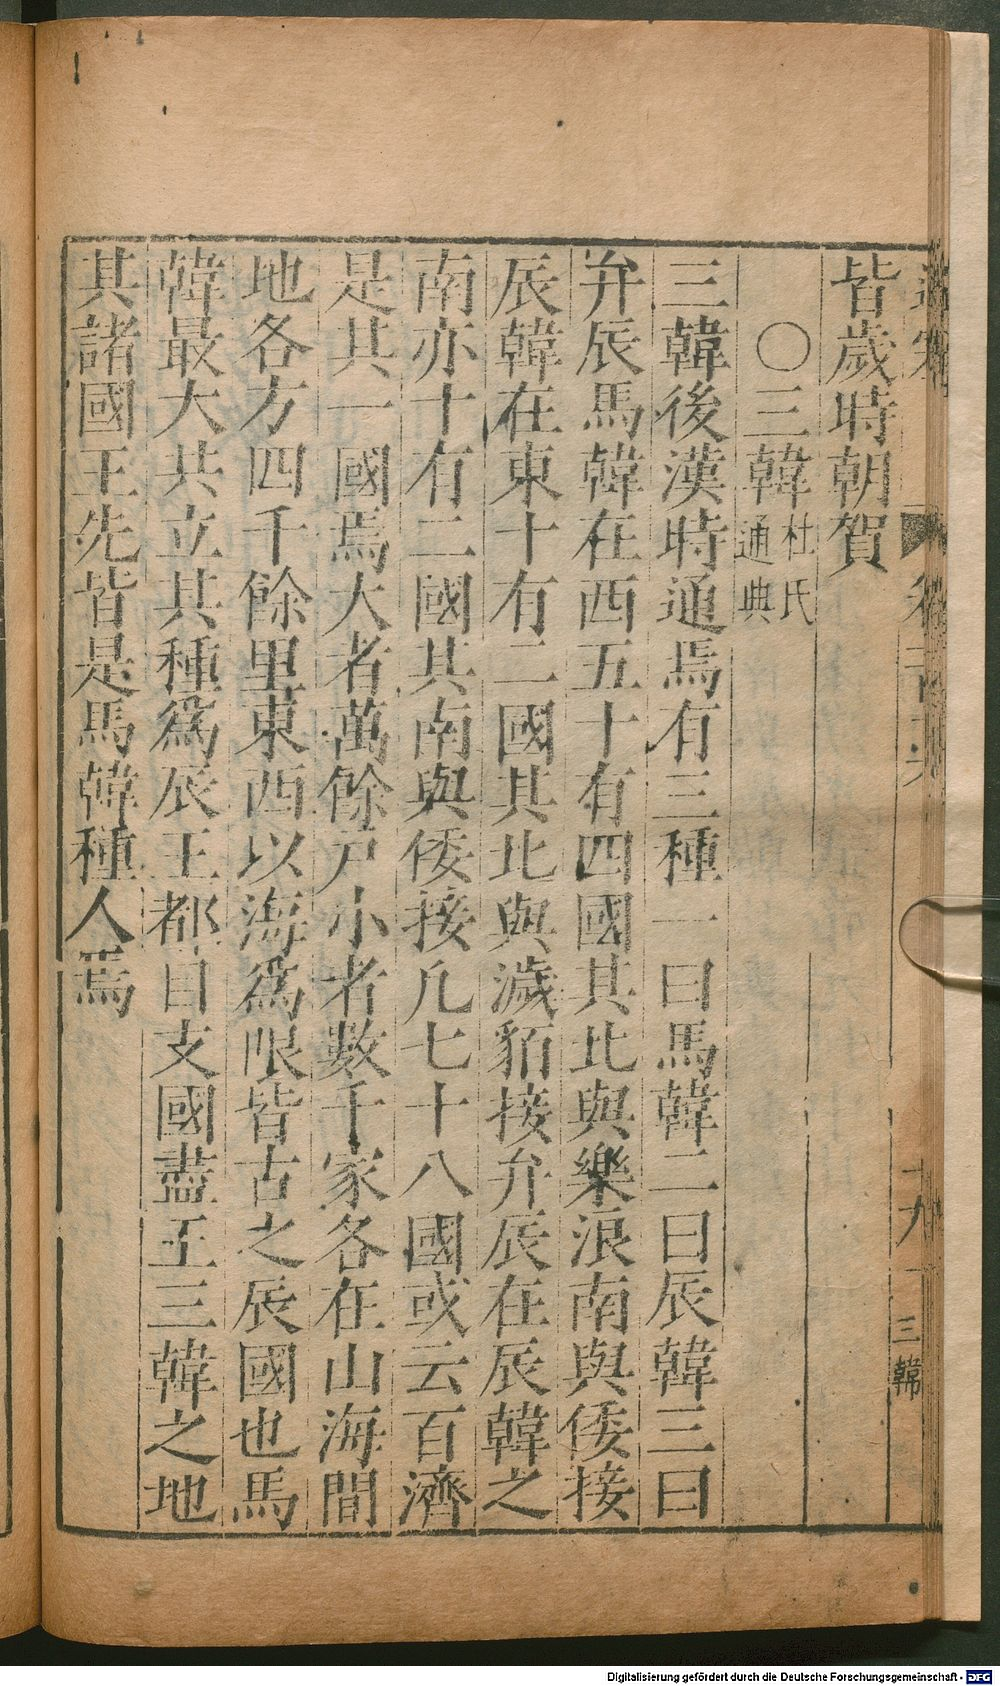 皆歲時朝賀
○三韓杜氏通典
三韓後漢時通焉有三種一曰馬韓二曰辰韓三曰
弁辰馬韓在西五十有四國其北與樂浪南與倭接
辰韓在東十有二國其北與濊貊接弁辰在辰韓之
南亦十有二國其南與倭接凡七十八國或云百濟
是其一國焉大者萬餘戶小者數千家各在山海間
地各方四千餘里東西以海為限皆古之辰國也馬
韓最大共立其種為辰王都目支國盡王三韓之地
其諸國王先皆是馬韓種人焉
十九
三韓
Digitalisierung gefördert durch die Deutsche Forschungsgemeinschaft - DFG